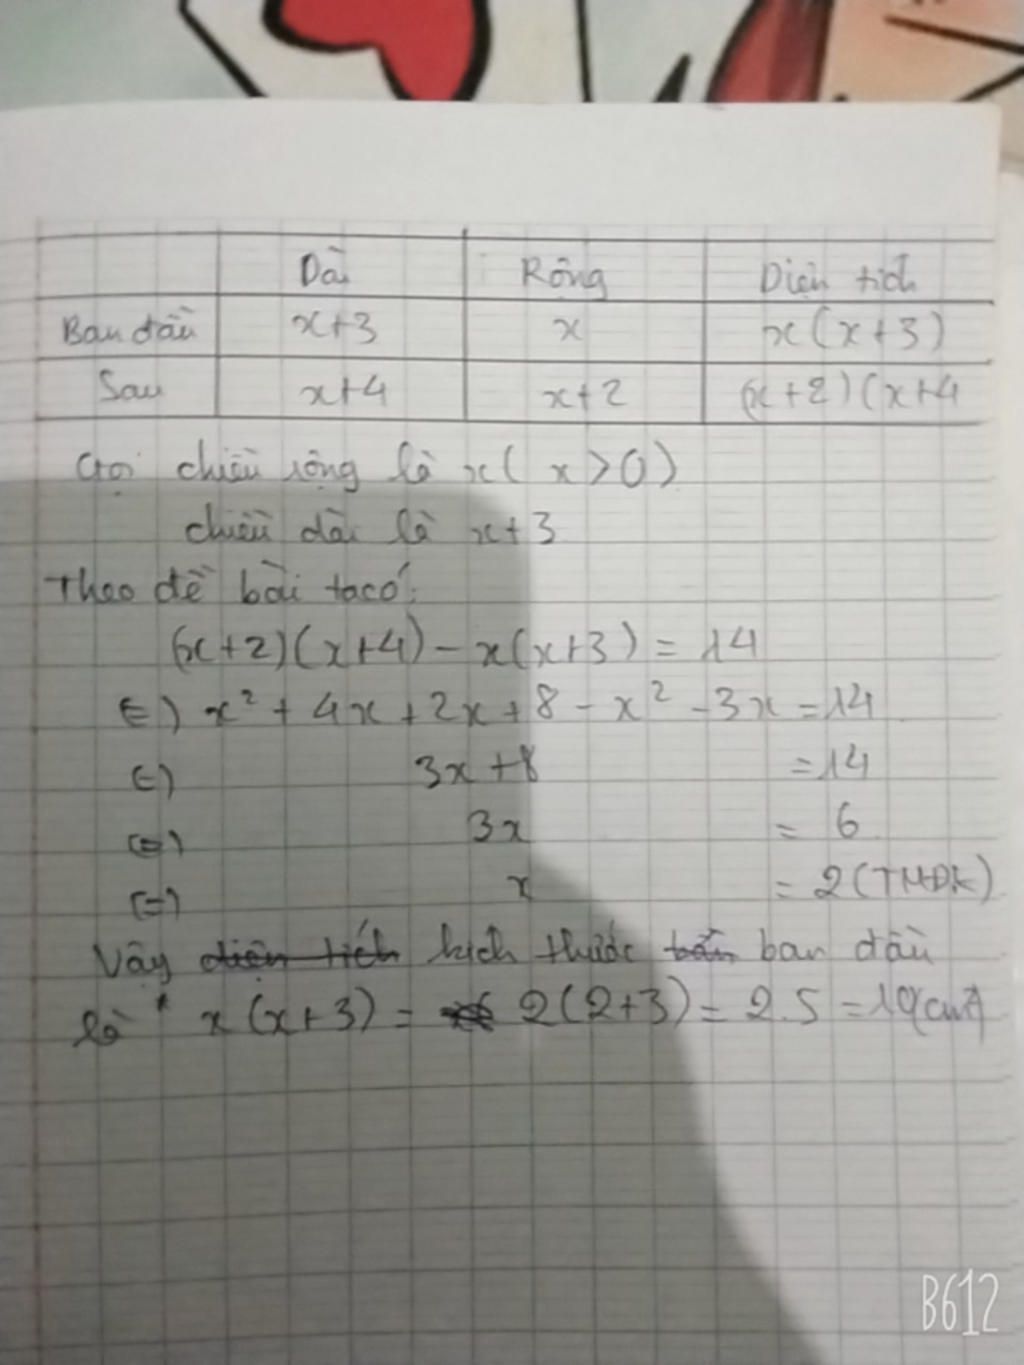 Dài Rộng Diện tích
Ban đầu x+3 x x(x+3)
Sau x+4 x+2 (x+2)(x+4
Gọi chiều rộng là x( x>0)
chiều dài là x+3
Theo đề bài ta có:
(x+2)(x+4) - x(x+3) = 14
(=) x² + 4x + 2x + 8 - x² - 3x = 14
(=) 3x + 8 = 14
(=) 3x = 6
(=) x = 2 (TMĐK)
Vậy diện tích kích thước ban đầu
là x(x+3) = 2(2+3) = 2.5 = 10(cm²)
B612